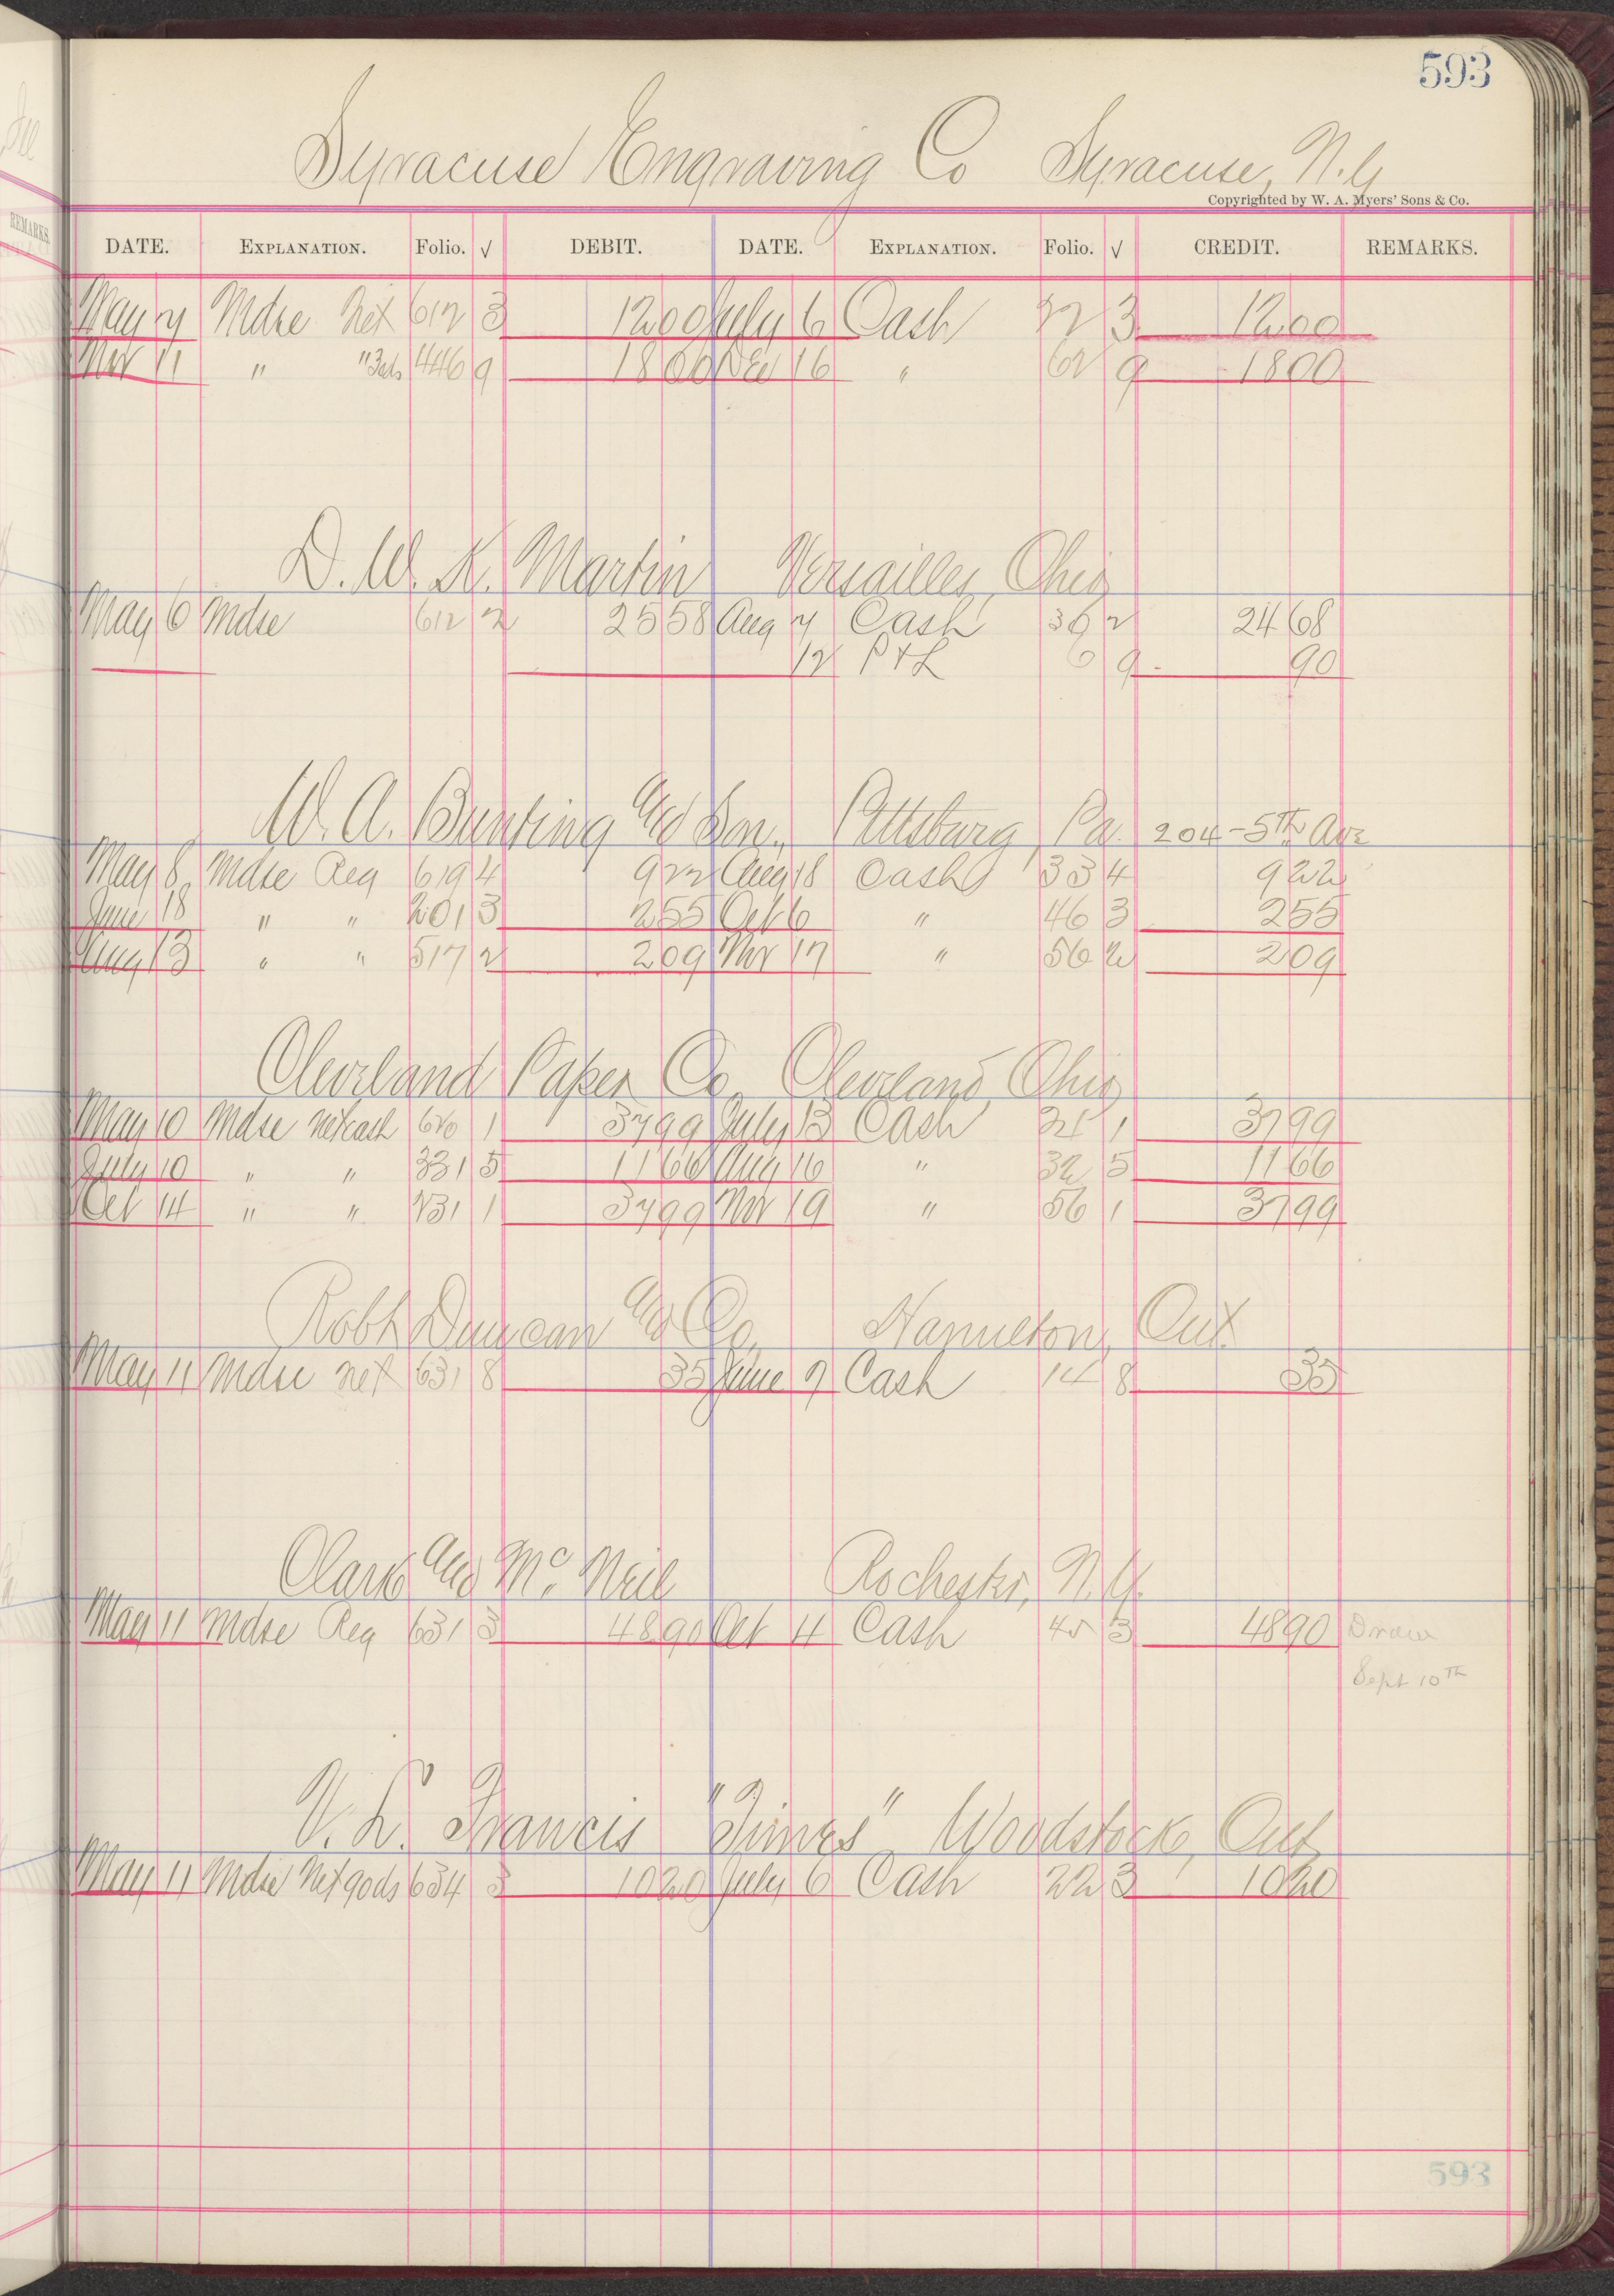 593
Syracuse Engraving Co Syracuse, N.Y
Copyrighted by W. A. Myers' Sons & Co.
REMARKS
DATE. EXPLANATION. Folio. √ DEBIT. DATE. EXPLANATION. Folio. √ CREDIT. REMARKS.
May 7 Mdse Net 612 3 1200 July 6 Cash 22 3 1200
Nov 11 " " 446 9 1800 Dec 16 " 62 9 1800
D. W. K. Martin Versailles, Ohio
May 6 Mdse 612 2 2558 Aug 7 Cash 36 2 2468
12 P & L 6 9 90
W. A. Bunting and Son, Pittsburg Pa. 204-5th Ave
May 8 Mdse Reg 619 4 922 Aug 18 Cash 33 4 922
June 18 " " 201 3 255 Oct 6 " 46 3 255
Aug 13 " " 517 2 209 Nov 17 " 56 2 209
Cleveland Paper Co, Cleveland, Ohio
May 10 Mdse net cash 620 1 3799 July 13 Cash 21 1 3799
July 10 " " 331 5 1166 Aug 16 " 32 5 1166
Oct 14 " " 131 1 3799 Nov 19 " 56 1 3799
Robt Duncan and Co, Hamilton, Ont.
May 11 Mdse net 631 8 35 June 9 Cash 14 8 35
Clark and McNeil Rochester, N.Y.
May 11 Mdse Reg 631 3 4890 Oct 4 Cash 45 3 4890 Draw
Sept 10th
V. L. Francis "Times" Woodstock, Ont
May 11 Mdse Net gods 634 3 1020 July 6 Cash 22 3 1020
593